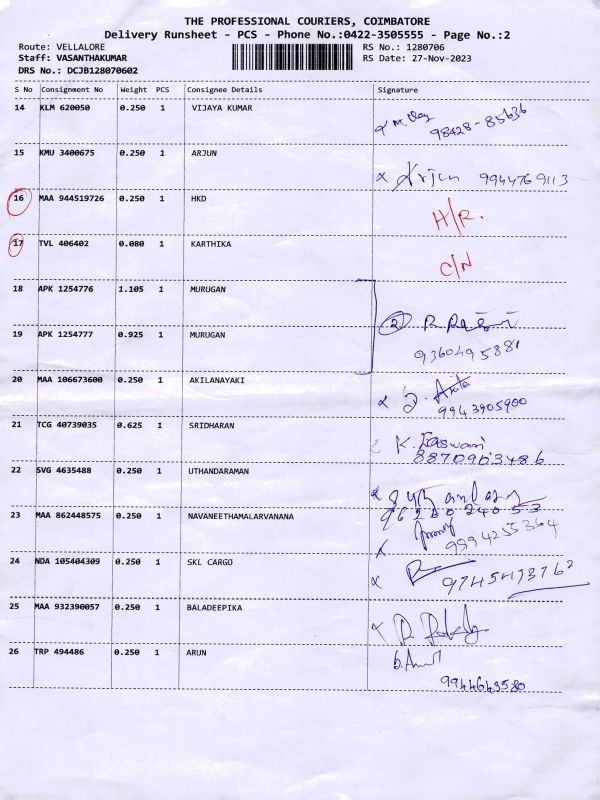 THE PROFESSIONAL COURIERS, COIMBATORE
Delivery Runsheet - PCS - Phone No.:0422-3505555 - Page No.:2
Route: VELLALORE RS No.: 1280706
Staff: VASANTHAKUMAR RS Date: 27-Nov-2023
DRS No.: DCJB128070602
S No Consignment No Weight PCS Consignee Details Signature
14 KLM 620050 0.250 1 VIJAYA KUMAR
98428-85636
15 KMU 3400675 0.250 1 ARJUN
Arjun 9944769113
16 MAA 944519726 0.250 1 HKD H/R.
17 TVL 406402 0.080 1 KARTHIKA C/N
18 APK 1254776 1.105 1 MURUGAN
2
19 APK 1254777 0.925 1 MURUGAN 9360495881
20 MAA 106673600 0.250 1 AKILANAYAKI
9943905900
21 TCG 40739035 0.625 1 SRIDHARAN
K. Easwari
8870903486
22 SVG 4635488 0.250 1 UTHANDARAMAN
9628024053
23 MAA 862448575 0.250 1 NAVANEETHAMALARVANANA
9994255364
24 NDA 105404309 0.250 1 SKL CARGO
25 MAA 932390057 0.250 1 BALADEEPIKA
26 TRP 494486 0.250 1 ARUN
9944643580